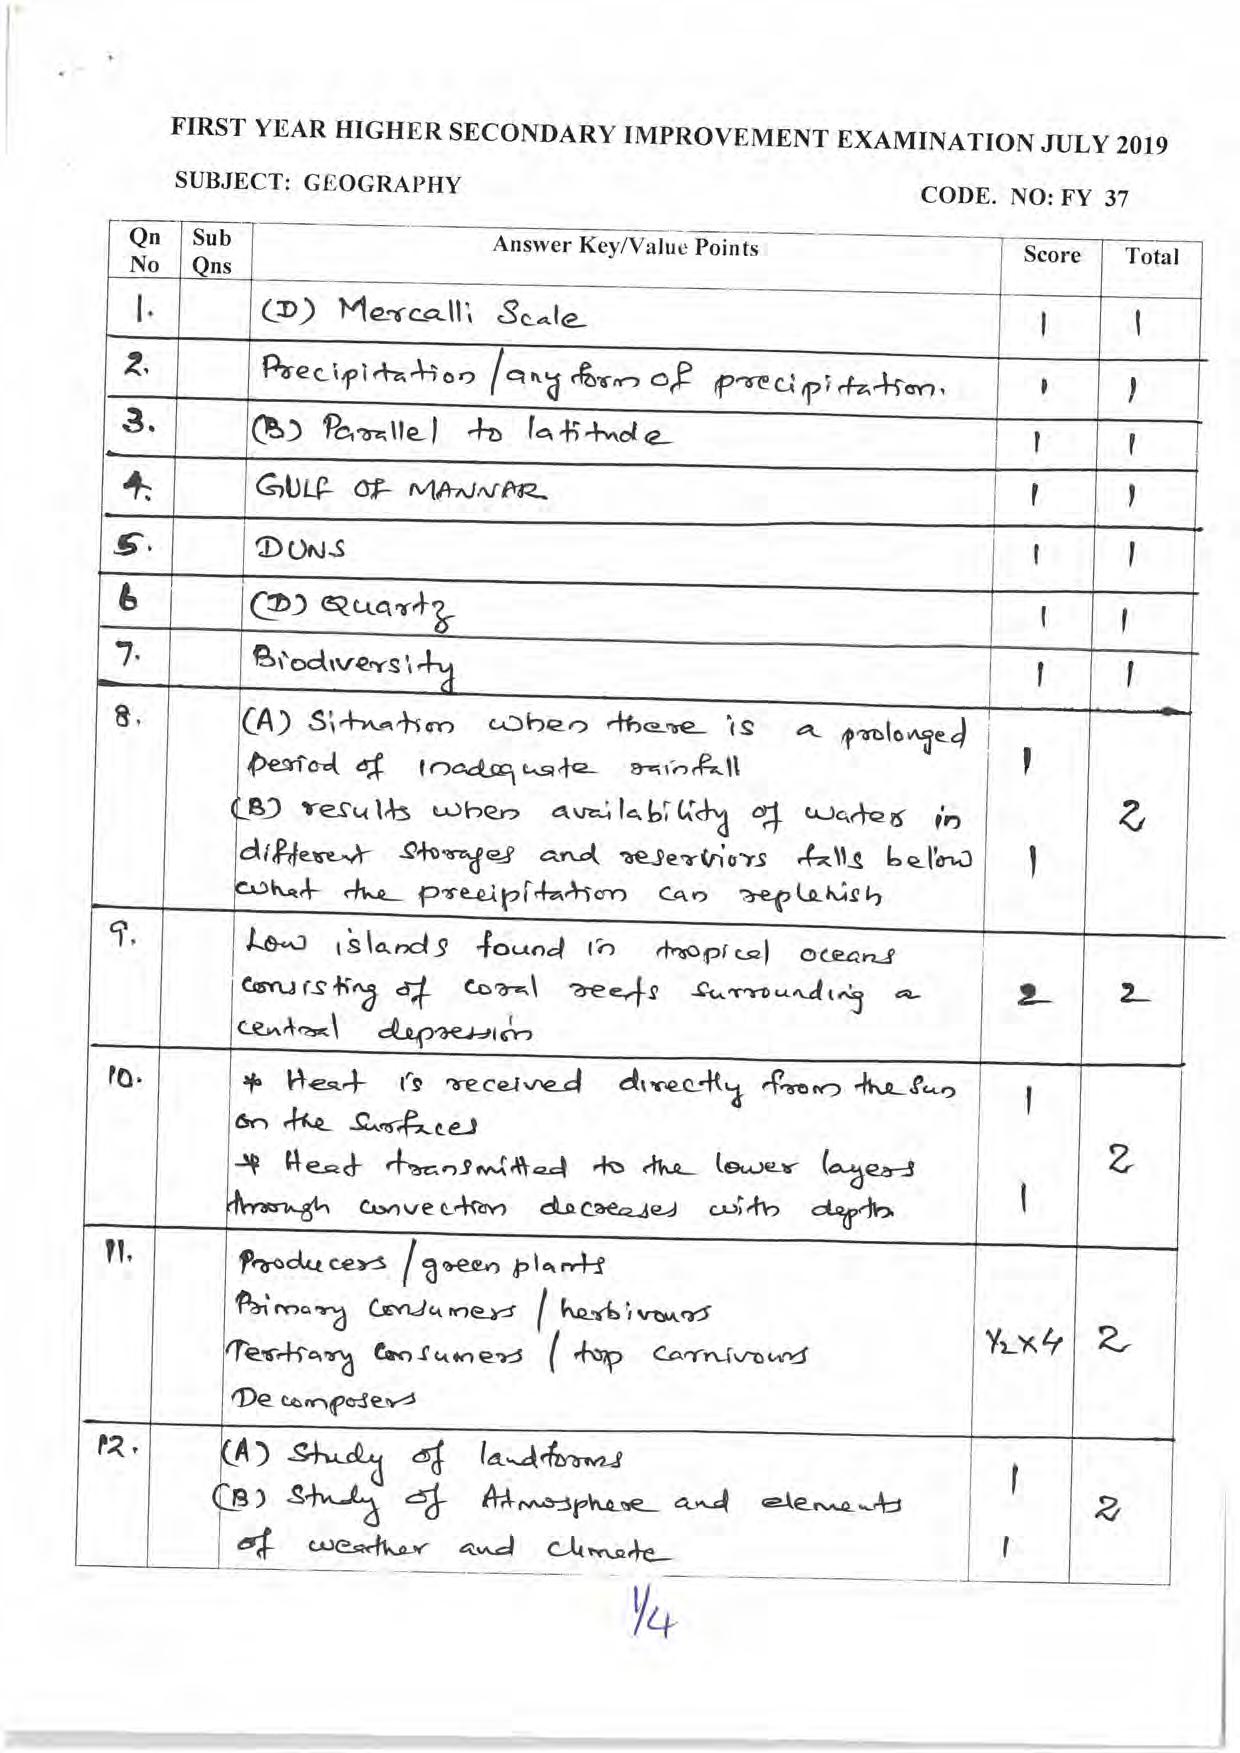 FIRST YEAR HIGHER SECONDARY IMPROVEMENT EXAMINATION JULY 2019
SUBJECT: GEOGRAPHY
CODE. NO: FY 37
Qn No Sub Qns Answer Key/Value Points Score Total
1. (D) Mercalli Scale 1 1
2. Precipitation / any form of precipitation. 1 1
3. (B) Parallel to latitude 1 1
4. GULF OF MANNAR 1 1
5. DUNS 1 1
6 (D) Quartz 1 1
7. Biodiversity 1 1
8. (A) Situation when there is a prolonged
period of inadequate rainfall 1
(B) results when availability of water in 2
different storages and reserviors falls below 1
what the precipitation can replenish
9. Low islands found in tropical oceans
consisting of coral reefs surrounding a 2 2
central depression
10. * Heat is received directly from the Sun 1
on the surfaces
* Heat transmitted to the lower layers 2
through convection decreases with depth 1
11. Producers / green plants
Primary consumers / herbivours
Tertiary consumers / top carnivours ½ x 4 2
Decomposers
12. (A) Study of landforms 1
(B) Study of Atmosphere and elements 2
of weather and climate 1
1/4